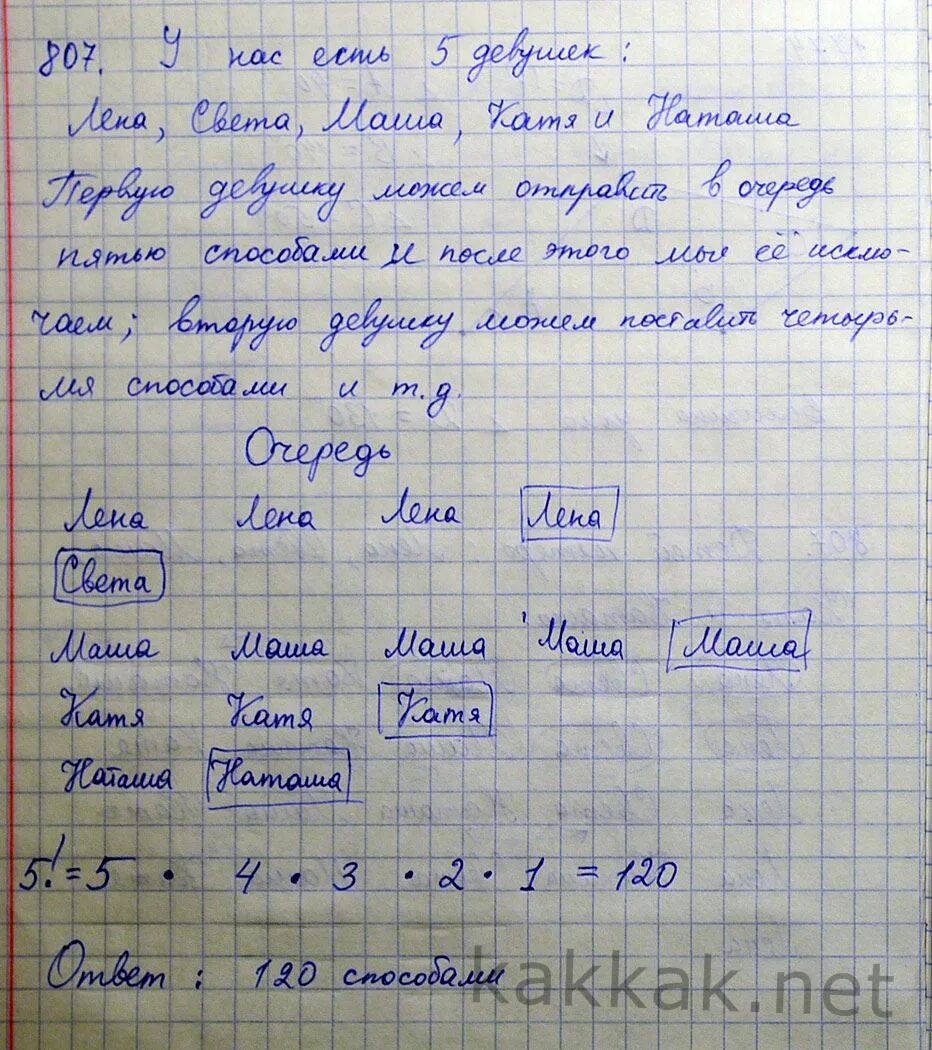 807. У нас есть 5 девушек:
Лена, Света, Маша, Катя и Наташа
Первую девушку можем отправить в очередь
пятью способами и после этого мы её исклю-
чаем; вторую девушку можем поставить четырь-
мя способами и т.д.
Очередь
Лена Лена Лена Лена
Света
Маша Маша Маша Маша Маша
Катя Катя Катя
Наташа Наташа
5! = 5 · 4 · 3 · 2 · 1 = 120
Ответ: 120 способами
kakkak.net